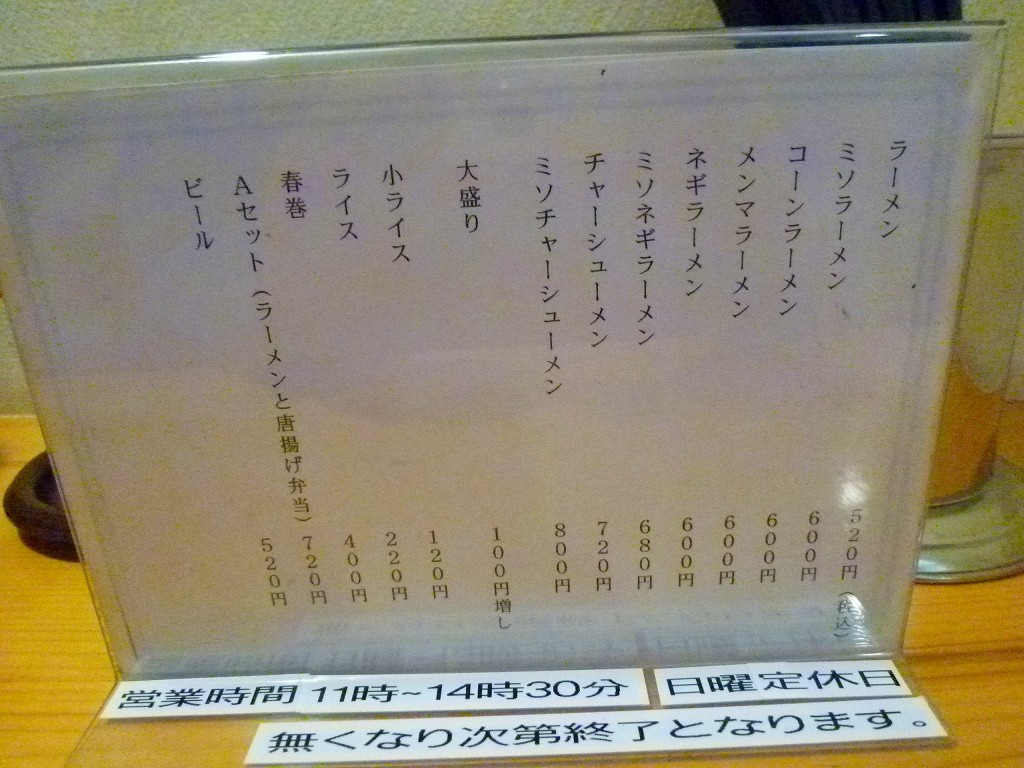 ラーメン 520円（税込）
ミソラーメン 600円
コーンラーメン 600円
メンマラーメン 600円
ネギラーメン 600円
ミソネギラーメン 680円
チャーシューメン 720円
ミソチャーシューメン 800円
大盛り 100円増し
小ライス 120円
ライス 220円
春巻 400円
Aセット（ラーメンと唐揚げ弁当） 720円
ビール 520円
営業時間 11時~14時30分
日曜定休日
無くなり次第終了となります。